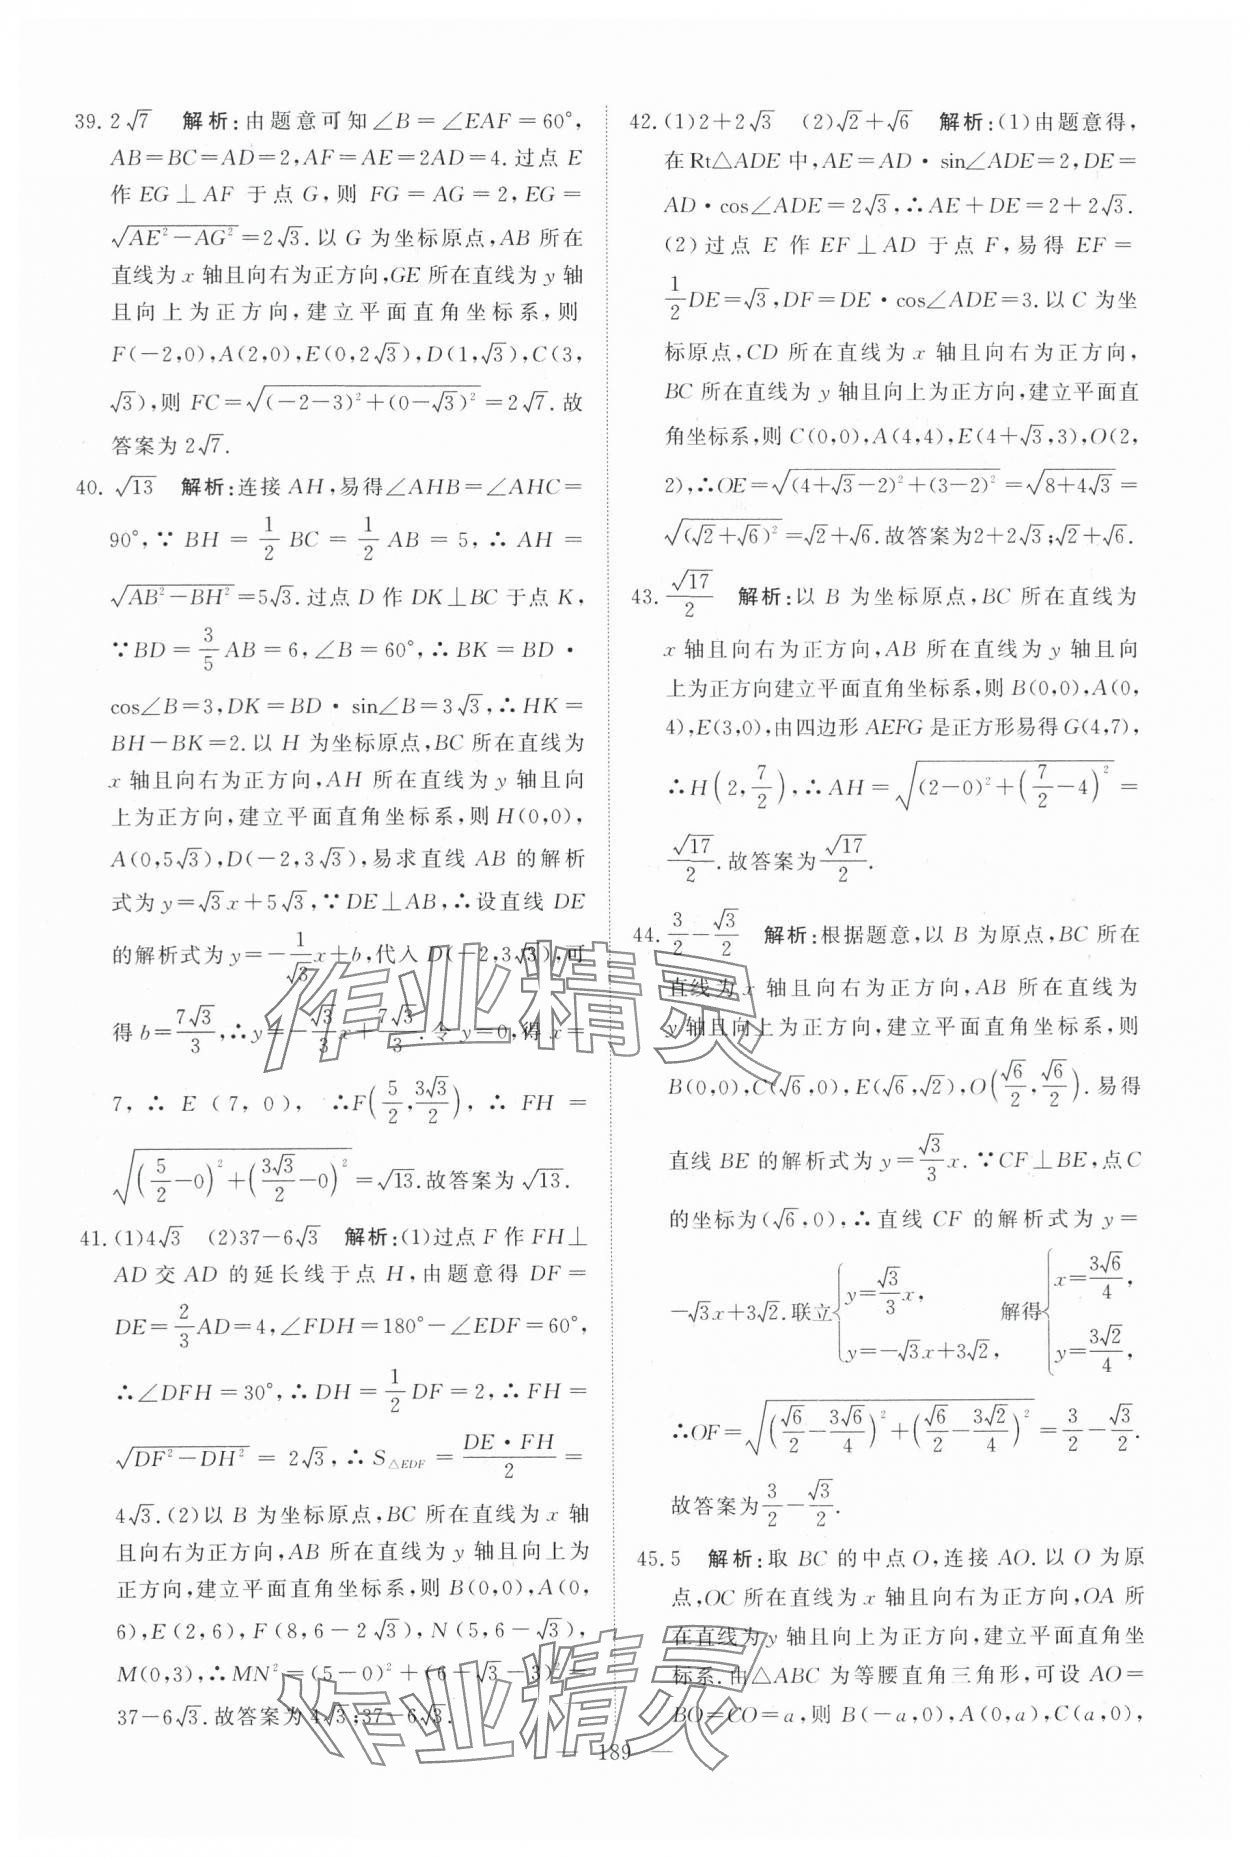 39. 2√7　解析:由题意可知∠B=∠EAF=60°,
AB=BC=AD=2,AF=AE=2AD=4.过点E
作EG⊥AF于点G,则FG=AG=2,EG=
√(AE²-AG²)=2√3.以G为坐标原点,AB所在
直线为x轴且向右为正方向,GE所在直线为y轴
且向上为正方向,建立平面直角坐标系,则
F(-2,0),A(2,0),E(0,2√3),D(1,√3),C(3,
√3),则FC=√((-2-3)²+(0-√3)²)=2√7.故
答案为2√7.
40. √13　解析:连接AH,易得∠AHB=∠AHC=
90°,∵BH=1/2 BC=1/2 AB=5,∴AH=
√(AB²-BH²)=5√3.过点D作DK⊥BC于点K,
∵BD=3/5 AB=6,∠B=60°,∴BK=BD·
cos∠B=3,DK=BD·sin∠B=3√3,∴HK=
BH-BK=2.以H为坐标原点,BC所在直线为
x轴且向右为正方向,AH所在直线为y轴且向
上为正方向,建立平面直角坐标系,则H(0,0),
A(0,5√3),D(-2,3√3),易求直线AB的解析
式为y=√3x+5√3,∵DE⊥AB,∴设直线DE
的解析式为y=-1/√3 x+b,代入D(-2,3√3),可
得b=7√3/3,∴y=-√3/3 x+7√3/3.令y=0,得x=
7,∴E(7,0),∴F(5/2,3√3/2),∴FH=
√((5/2-0)²+(3√3/2-0)²)=√13.故答案为√13.
41. (1)4√3　(2)37-6√3　解析:(1)过点F作FH⊥
AD交AD的延长线于点H,由题意得DF=
DE=2/3 AD=4,∠FDH=180°-∠EDF=60°,
∴∠DFH=30°,∴DH=1/2 DF=2,∴FH=
√(DF²-DH²)=2√3,∴S△EDF=DE·FH/2=
4√3.(2)以B为坐标原点,BC所在直线为x轴
且向右为正方向,AB所在直线为y轴且向上为
正方向,建立平面直角坐标系,则B(0,0),A(0,
6),E(2,6),F(8,6-2√3),N(5,6-√3),
M(0,3),∴MN²=(5-0)²+(6-√3-3)²=
37-6√3.故答案为4√3;37-6√3.
42. (1)2+2√3　(2)√2+√6　解析:(1)由题意得,
在Rt△ADE中,AE=AD·sin∠ADE=2,DE=
AD·cos∠ADE=2√3,∴AE+DE=2+2√3.
(2)过点E作EF⊥AD于点F,易得EF=
1/2 DE=√3,DF=DE·cos∠ADE=3.以C为坐
标原点,CD所在直线为x轴且向右为正方向,
BC所在直线为y轴且向上为正方向,建立平面直
角坐标系,则C(0,0),A(4,4),E(4+√3,3),O(2,
2),∴OE=√((4+√3-2)²+(3-2)²)=√(8+4√3)=
√((√2+√6)²)=√2+√6.故答案为2+2√3;√2+√6.
43. √17/2　解析:以B为坐标原点,BC所在直线为
x轴且向右为正方向,AB所在直线为y轴且向
上为正方向建立平面直角坐标系,则B(0,0),A(0,
4),E(3,0),由四边形AEFG是正方形易得G(4,7),
∴H(2,7/2),∴AH=√((2-0)²+(7/2-4)²)=
√17/2.故答案为√17/2.
44. 3/2-√3/2　解析:根据题意,以B为原点,BC所在
直线为x轴且向右为正方向,AB所在直线为
y轴且向上为正方向,建立平面直角坐标系,则
B(0,0),C(√6,0),E(√6,√2),O(√6/2,√6/2).易得
直线BE的解析式为y=√3/3 x.∵CF⊥BE,点C
的坐标为(√6,0),∴直线CF的解析式为y=
-√3x+3√2.联立{y=√3/3 x, y=-√3x+3√2,解得{x=3√6/4, y=3√2/4,
∴OF=√((√6/2-3√6/4)²+(√6/2-3√2/4)²)=3/2-√3/2.
故答案为3/2-√3/2.
45. 5　解析:取BC的中点O,连接AO.以O为原
点,OC所在直线为x轴且向右为正方向,OA所
在直线为y轴且向上为正方向,建立平面直角坐
标系.由△ABC为等腰直角三角形,可设AO=
BO=CO=a,则B(-a,0),A(0,a),C(a,0),
— 189 —
作业精灵
作业精灵